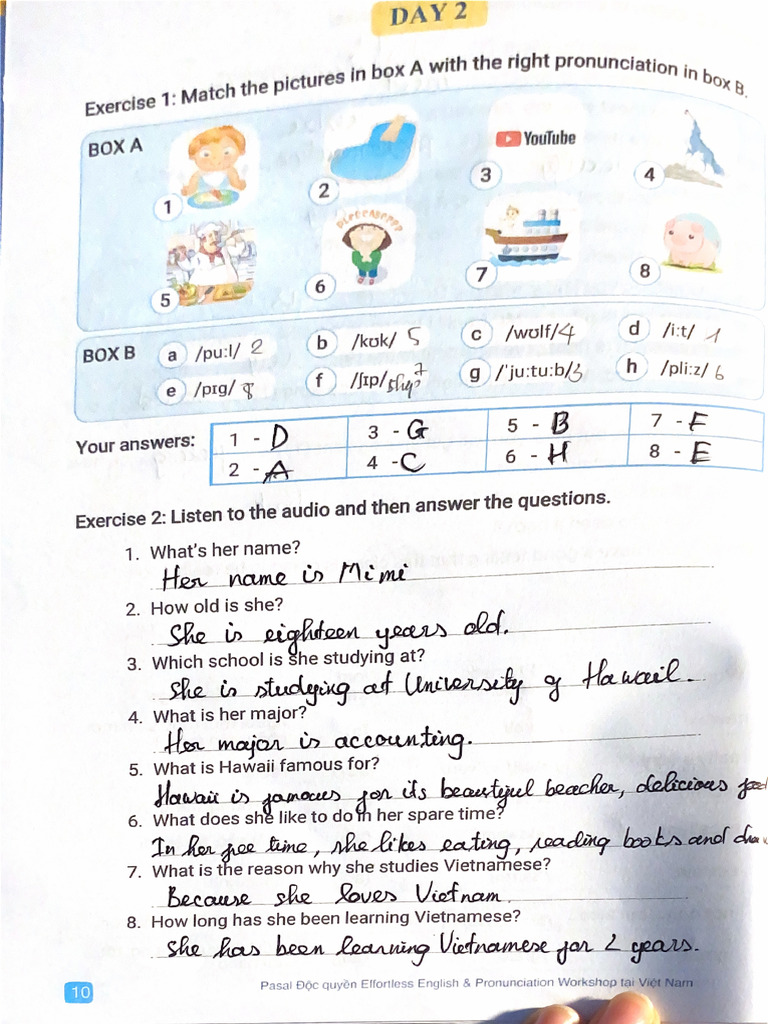 DAY 2
Exercise 1: Match the pictures in box A with the right pronunciation in box B.
BOX A
1
2
3
YouTube
4
5
6
7
8
BOX B
a /pu:l/ 2
b /kʊk/ 5
c /wʊlf/ 4
d /i:t/ 1
e /pɪg/ 8
f /ʃɪp/ ship 7
g /'ju:tu:b/ 3
h /pli:z/ 6
Your answers:
1 - D
3 - G
5 - B
7 - F
2 - A
4 - C
6 - H
8 - E
Exercise 2: Listen to the audio and then answer the questions.
1. What's her name?
Her name is Mimi
2. How old is she?
She is eighteen years old.
3. Which school is she studying at?
She is studying at University of Hawail.
4. What is her major?
Her major is accounting.
5. What is Hawaii famous for?
Hawaii is famous for its beautyful beacher, delicious
6. What does she like to do in her spare time?
In her free time, she likes eating, reading books and
7. What is the reason why she studies Vietnamese?
Because she loves Vietnam.
8. How long has she been learning Vietnamese?
She has been learning Vietnamese for 2 years.
10
Pasal Độc quyền Effortless English & Pronunciation Workshop tại Việt Nam